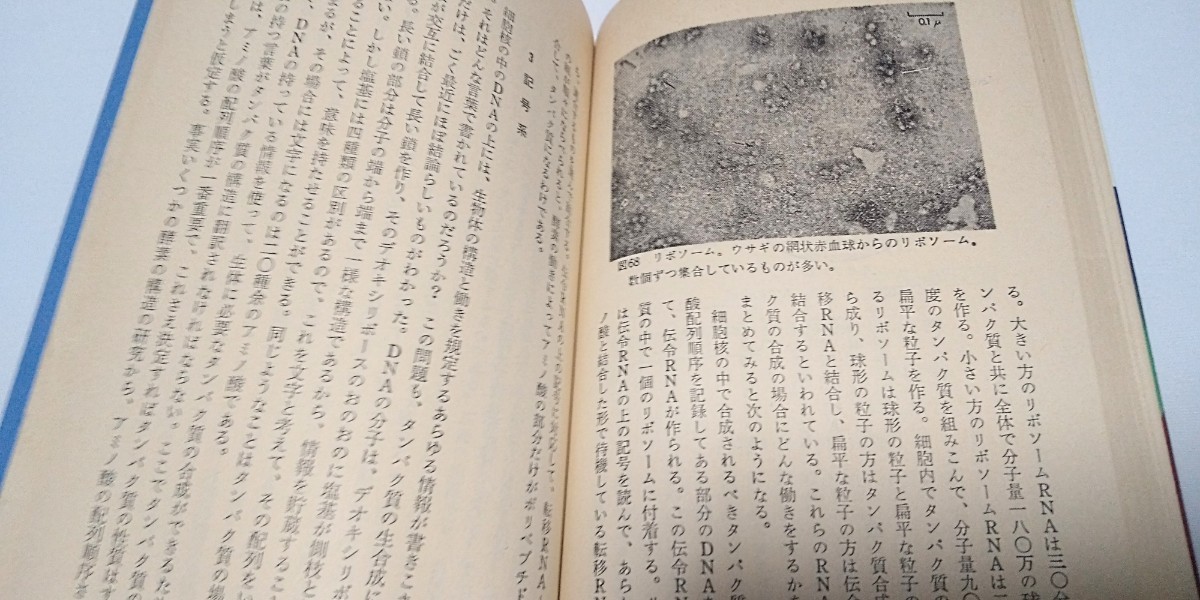 0.1μ
図68 リボソーム。ウサギの網状赤血球からのリボソーム。
数個ずつ集合しているものが多い。
る。大きい方のリボソームRNAは三〇分
ンパク質と共に全体で分子量一八〇万の球
を作る。小さい方のリボソームRNAは二
度のタンパク質を組みこんで、分子量九〇
扁平な粒子を作る。細胞内でタンパク質の
るリボソームは球形の粒子と扁平な粒子の
ら成り、球形の粒子の方はタンパク質合成
移RNAと結合し、扁平な粒子の方は伝令
結合するといわれている。これらのRNA
ク質の合成の場合にどんな働きをするか
まとめてみると次のようになる。
細胞核の中で合成されるべきタンパク質
酸配列順序を記録してある部分のDNA
て、伝令RNAが作られる。この伝令RN
質の中で一個のリボソームに付着する。
は伝令RNAの上の記号を読んで、あら
ノ酸と結合した形で待機している転移RN
の働きによってアミノ酸の部分だけがポリペプチド
タンパク質になるわけである。
3 記号系
細胞核の中のDNAの上には、生物体の構造と働きを規定するあらゆる情報が書きこま
それはどんな言葉で書かれているのだろうか? この問題も、タンパク質の生合成に
だけは、ごく最近にほぼ結論らしいものがわかった。DNAの分子は、デオキシリボ
が交互に結合して長い鎖を作り、そのデオキシリボースのおのおのに塩基が側枝と
る。長い鎖の部分は分子の端から端まで一様な構造であるから、情報を貯蔵するこ
い。しかし塩基には四種類の区別があるので、これを文字と考えて、その配列をい
ることによって、意味を持たせることができる。同じようなことはタンパク質の場
まるが、その場合には文字になるのは二〇種余のアミノ酸である。
DNAの持っている情報を使って、生体に必要なタンパク質の合成ができるた
の持つ言葉がタンパク質の構造に翻訳されなければならない。ここでタンパク質の
は、アミノ酸の配列順序が一番重要で、これさえ決定すればタンパク質の性質はす
しまうと仮定する。事実いくつかの酵素の構造の研究から、アミノ酸の配列順序さ